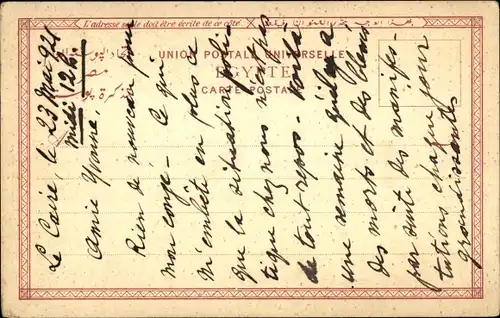 L'adresse seule doit être écrite de ce côté.
UNION POSTALE UNIVERSELLE
EGYPTE
CARTE POSTALE
Le Caire, le 23 Mai 924
midi 12 h.
Amie Yvonne,
Rien de nouveau pour
mon congé - Ce qui
m'embête en plus ce
que la situation poli-
tique chez nous n'est pas
de tout repos. Voilà
une semaine qu'il y a
des morts et des blessés
par suite des manifes-
tations chaque jour
grandissantes